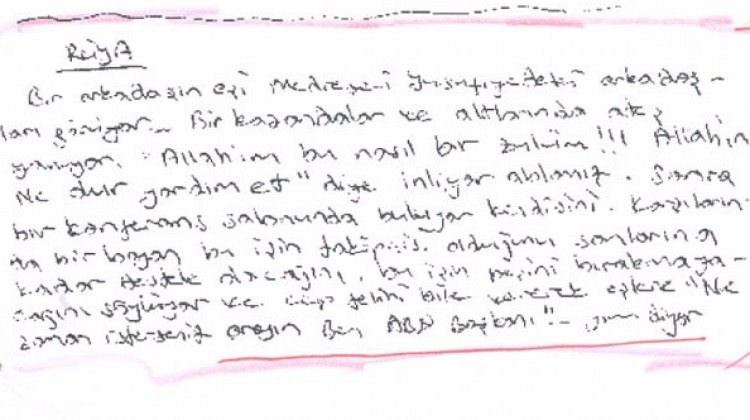 Rüya
Bir arkadaşın eşi Medrese-i Yusufiyedeki arkadaş-
ları görüyor. Bir kazandalar ve altlarında ateş
yanıyor. "Allahim bu nasıl bir zulüm!!! Allahim
Ne olur yardim et" diye inliyor ablamız. Sonra
bir konferans salonunda buluyor kendisini. Karşıların-
da bir bayan bu işin takipçisi olduğunu sonlarına
kadar destek olacağını, bu işin peşini bırakmaya-
cağını söylüyor ve cep telini bile vererek "Ne
zaman isterseniz arayın Ben ABD Başkanı!" diyor